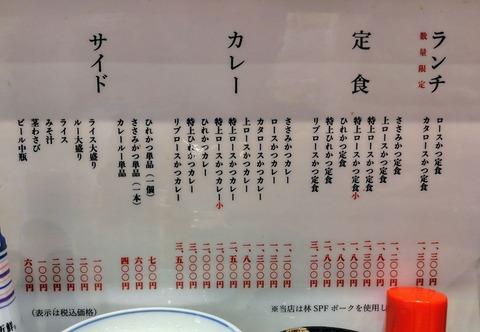 ランチ
数量限定
ロースかつ定食
カタロースかつ定食 一、三〇〇円
定食
ささみかつ定食 一、二〇〇円
上ロースかつ定食 一、八〇〇円
特上ロースかつ定食
特上ロースかつ定食小 一、八〇〇円
ひれかつ定食
特上ひれかつ定食
リブロースかつ定食 三、二〇〇円
カレー
ささみかつカレー
ロースかつカレー
カタロースかつカレー
上ロースかつカレー
特上ロースかつカレー 二、五〇〇円
特上ロースかつカレー小
ひれかつカレー
特上ひれかつカレー
リブロースかつカレー 三、五〇〇円
サイド
ひれかつ単品（一個） 七〇〇円
ささみかつ単品（一本） 六〇〇円
カレールー単品 四〇〇円
ライス大盛り 一〇〇円
ルー大盛り 二〇〇円
ライス 二〇〇円
みそ汁 一〇〇円
茎わさび 一〇〇円
ビール中瓶 六〇〇円
※当店は林SPFポークを使用し
（表示は税込価格）